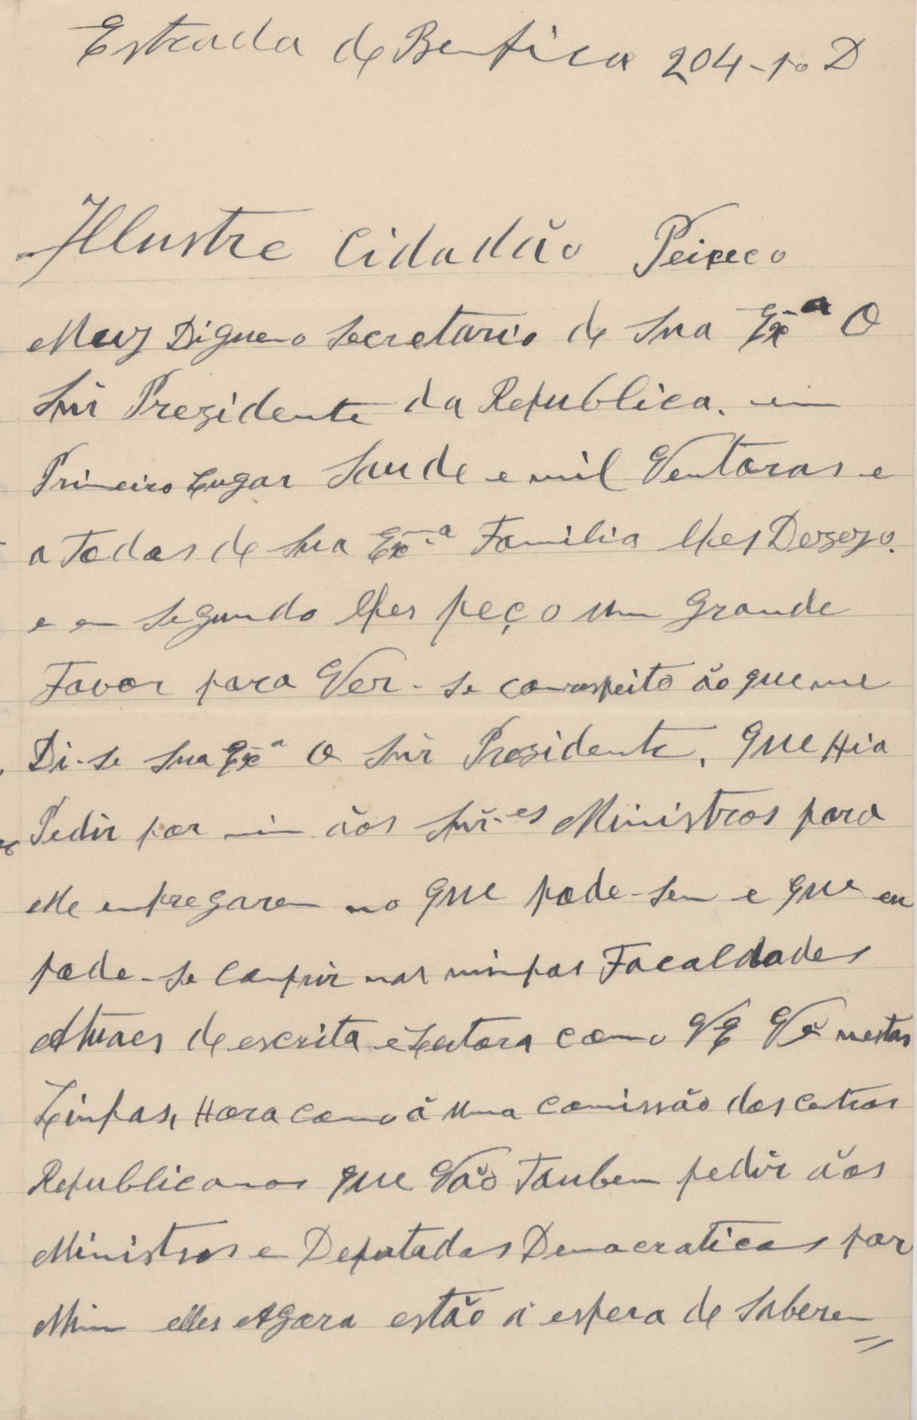 Estrada de Benfica 204-1º D
Illustre Cidadão
Muy Digueno Secretario de Sua Exª O
Snr Prezidente da Republica. em
Primeiro Lugar Saude e mil Venturas e
a Todos de Sua Exª Familia lhes Dezejo.
e em Segundo lhes peço um Grande
Favor para Ver-se com respeito ão que me
Di-se Sua Exª O Snr Presidente, que Hia
Pedir por mim ãos Snr.es Ministros para
Me empregarem no que pode-sem e que eu
pode-se Comprir nas minhas Facaldades
Atuaes de escrita e Leutora como Vê nestas
Linhas, Hora como á uma comissão dos Centros
Republicanos que Vão Tambem pedir ãos
Ministros e Deputados Democraticos por
Mim elles Agora estão á espera de Saberem